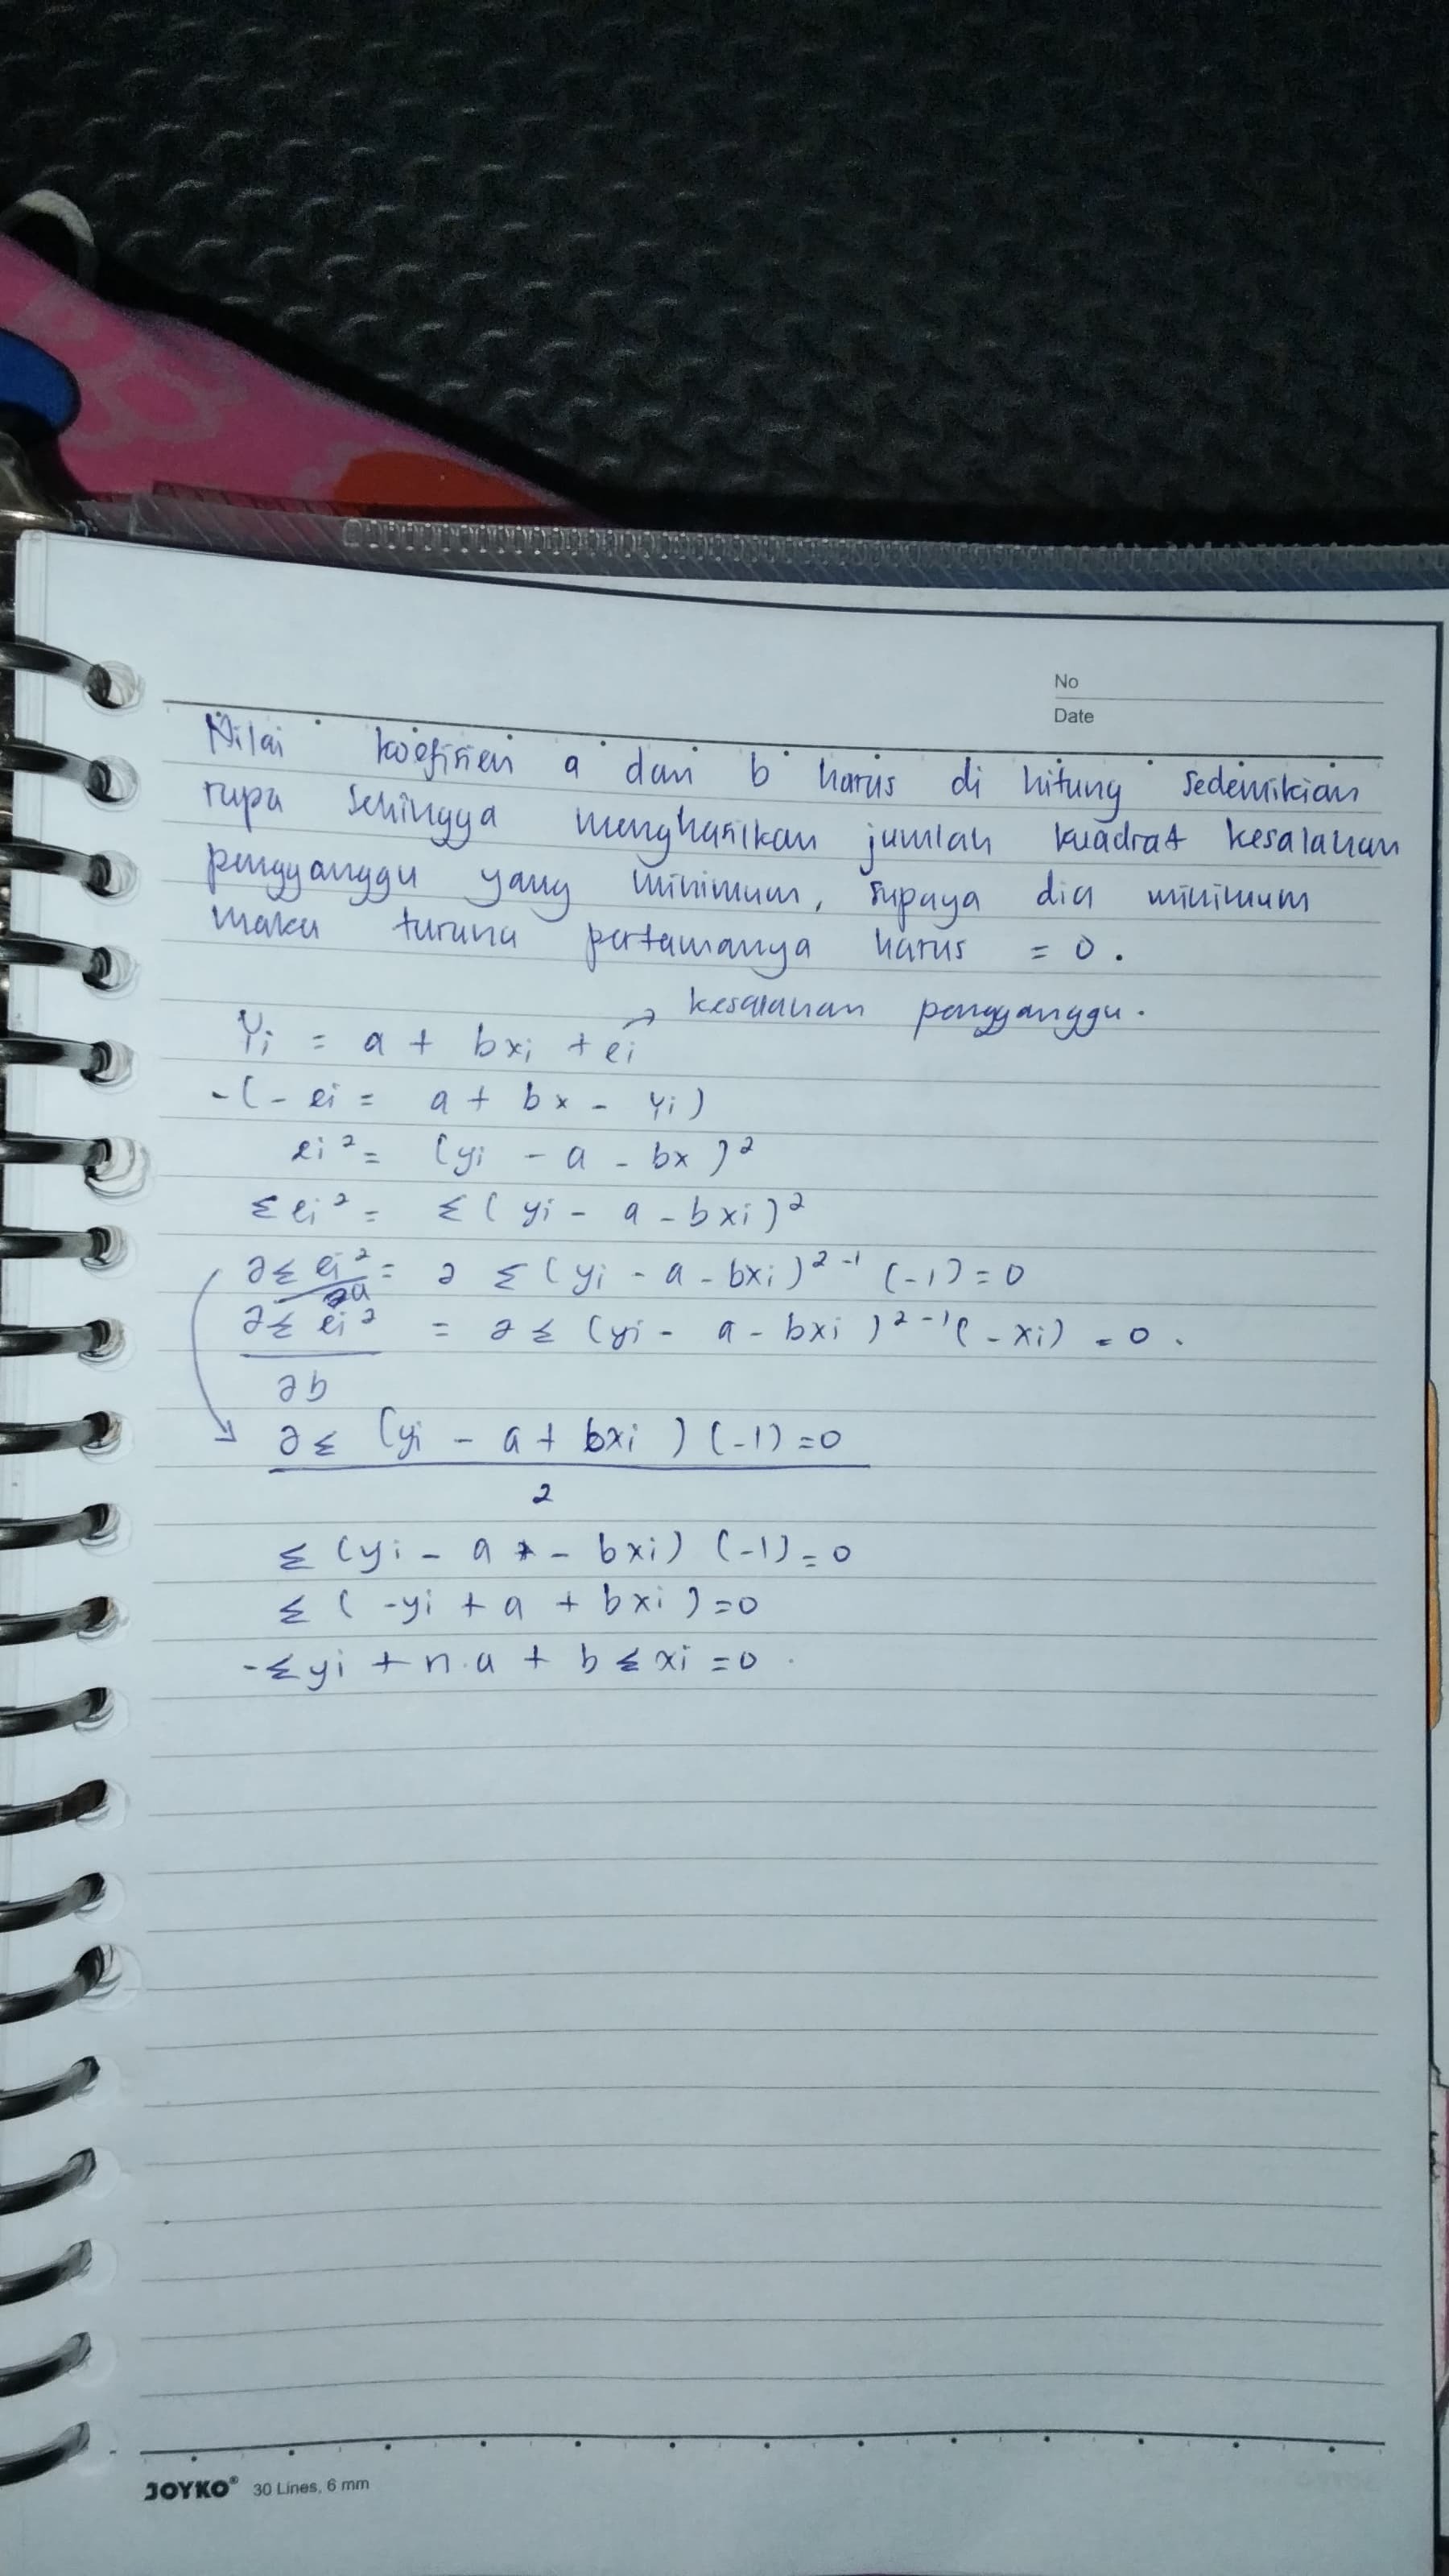 No
Date
Nilai koefisien a dan b harus di hitung sedemikian
rupa sehingga menghasilkan jumlah kuadrat kesalahan
pengganggu yang minimum, supaya dia minimum
maka turuna pertamanya harus = 0.
→ kesalahan pengganggu.
Yi = a + bxi + ei
-(- ei = a + bx - Yi)
ei² = (yi - a - bx)²
Σei² = Σ(yi - a - bxi)²
∂Σei²/∂a = 2 Σ(yi - a - bxi)²⁻¹ (-1) = 0
∂Σei² = 2Σ (yi - a - bxi)²⁻¹(-xi) = 0.
∂b
2Σ (yi - a + bxi) (-1) = 0
2
Σ (yi - a - bxi) (-1) = 0
Σ (-yi + a + bxi) = 0
-Σyi + n.a + bΣxi = 0.
JOYKO® 30 Lines, 6 mm